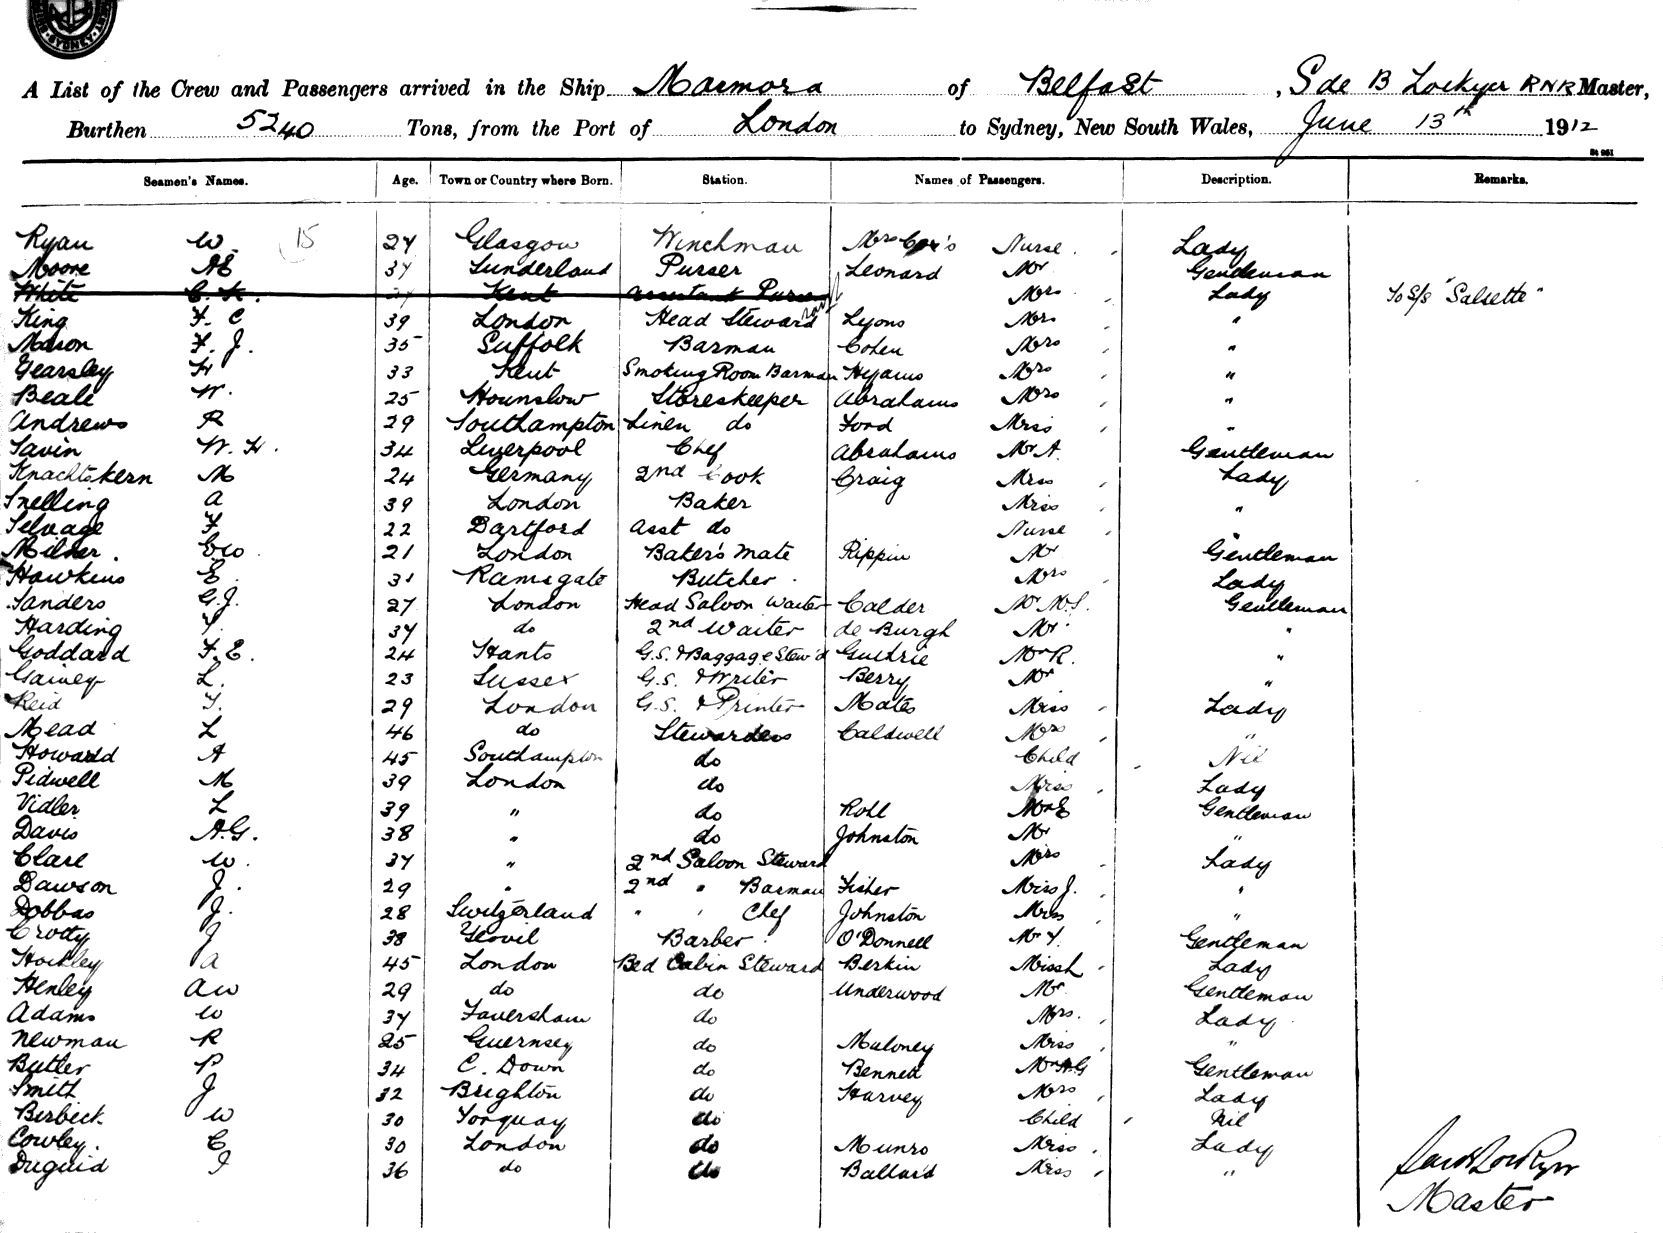 SYDNEY
A List of the Crew and Passengers arrived in the Ship Marmora of Belfast, S de B Lockyer RNR Master,
Burthen 5240 Tons, from the Port of London to Sydney, New South Wales, June 13th 1912
St 961
Seamen's Names. Age. Town or Country where Born. Station. Names of Passengers. Description. Remarks.
Ryan W. 15 24 Glasgow Winchman Mrs Cox's Nurse Lady
Moore AE 34 Sunderland Purser Leonard Mr Gentleman
White C. Kent Assistant Purser Mrs Lady To S/S "Salsette"
King F. C 39 London Head Steward Lyons Mrs "
Mason F. J. 35 Suffolk Barman Cohen Mrs "
Gearsley H 33 Kent Smoking Room Barman Hyams Mrs "
Beale W. 25 Hounslow Storeskeeper Abrahams Mrs "
Andrews R 29 Southampton Linen do Ford Miss "
Savin W. H. 34 Liverpool Chef Abrahams Mr A. Gentleman
Knachtskern M 24 Germany 2nd Cook Craig Miss Lady
Snelling A 39 London Baker Miss "
Selvage F 22 Dartford Asst do Nurse "
Milner. CW. 21 London Baker's Mate Rippin Mr Gentleman
Hawkins E. 31 Ramsgate Butcher. Mrs Lady
Sanders G.J. 27 London Head Saloon Waiter Calder Mr M.S. Gentleman
Harding 34 do 2nd Waiter de Burgh Mr "
Goddard F.E. 24 Hants G.S. & Baggage Stew'd Guthrie Mr R. "
Gainey L. 23 Sussex G.S. & Writer Berry Mr "
Reid 29 London G.S. & Printer Mates Miss Lady
Mead L 46 do Stewardess Caldwell Mrs "
Howard A 45 Southampton do Child Nil
Pidwell M 39 London do Miss Lady
Vidler L 39 " do Rohl Mr E Gentleman
Davis A.G. 38 " do Johnston Mr "
Clare W. 34 " 2nd Saloon Steward Mrs Lady
Dawson J. 29 " 2nd " Barman Fisher Miss J. "
Dobbas J. 28 Switzerland " " Chef Johnston Miss "
Crotty J 38 Yeovil Barber O'Donnell Mr Gentleman
Hockley A 45 London Bed Cabin Steward Berkin Miss L Lady
Henley AW 29 do do Underwood Mr Gentleman
Adams W 34 Faversham do Mrs. Lady
Newman R 25 Guernsey do Maloney Miss "
Butler P 34 C. Down do Bennett Mr AG Gentleman
Smith J 32 Brighton do Harvey Mrs Lady
Birbeck W 30 Torquay do Child Nil
Cowley. C 30 London do Munro Miss Lady
Duguid J 36 do do Ballard Miss "
Master